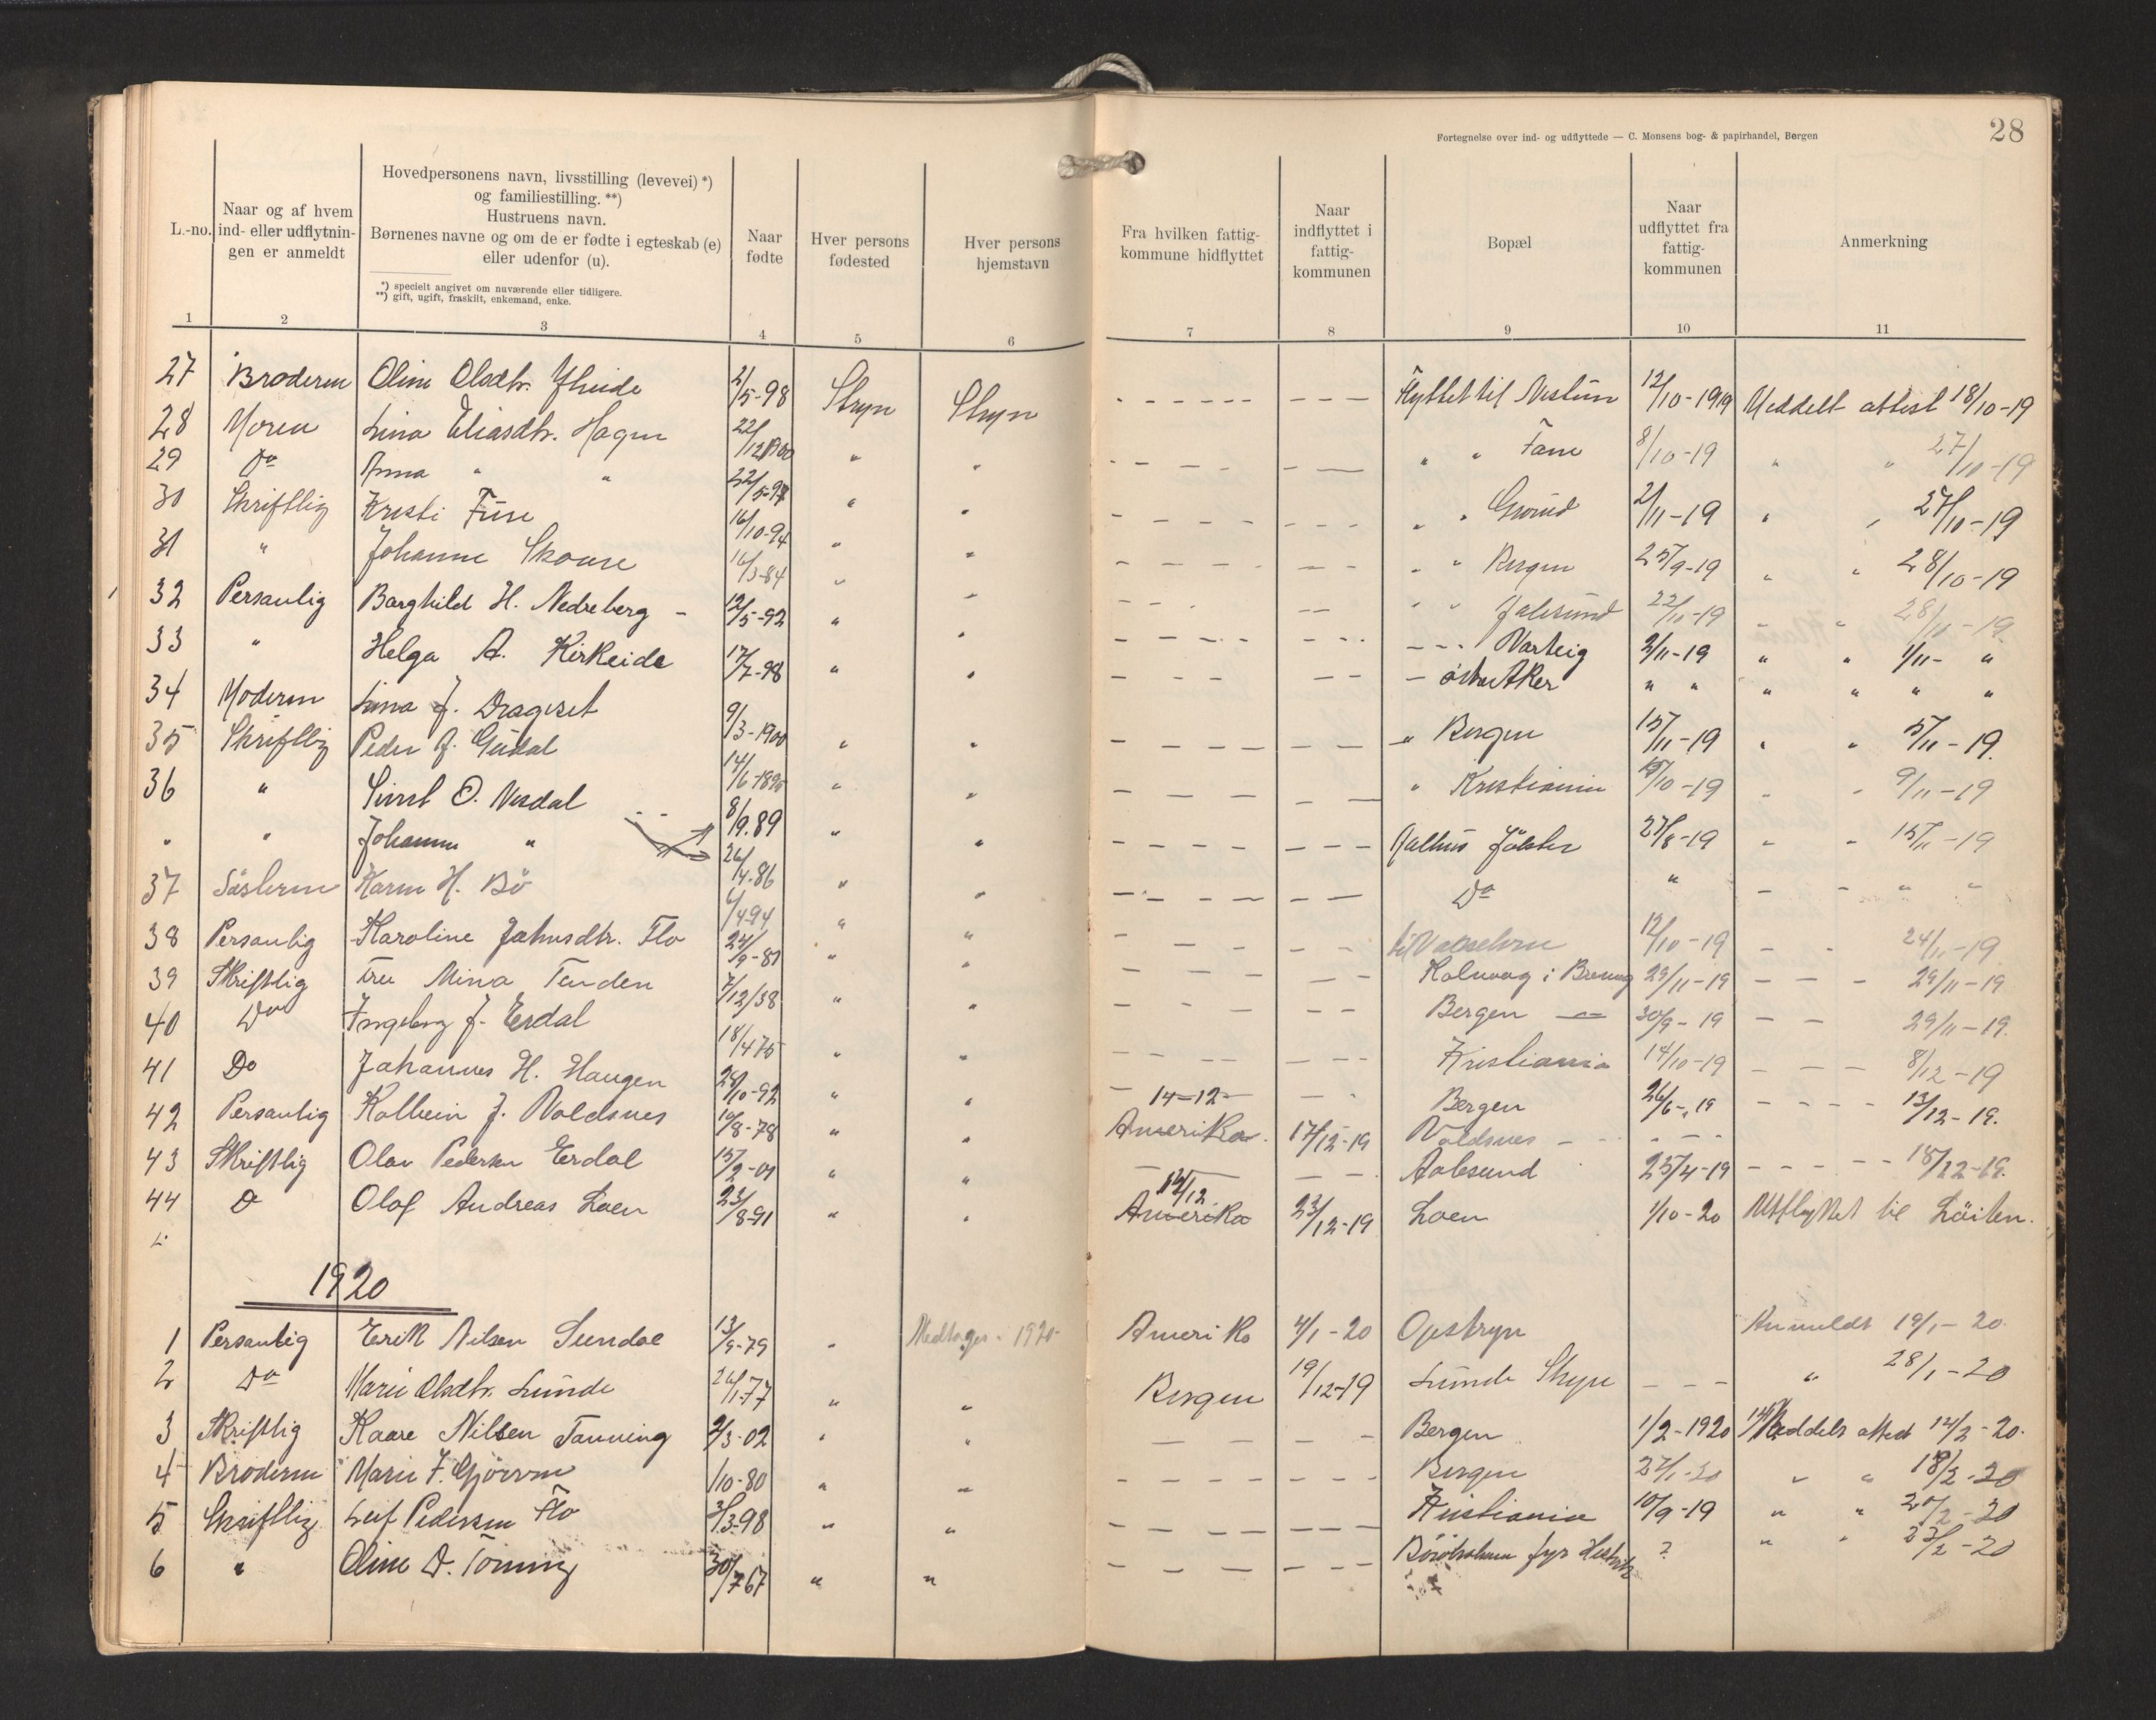 Fortegnelse over ind- og udflyttede — C. Monsens bog- & papirhandel, Bergen
28
L.-no.
Naar og af hvem ind- eller udflytnin-gen er anmeldt
Hovedpersonens navn, livsstilling (levevei) *)
og familiestilling. **)
Hustruens navn.
Børnenes navne og om de er fødte i egteskab (e)
eller udenfor (u).
*) specielt angivet om nuværende eller tidligere.
**) gift, ugift, fraskilt, enkemand, enke.
Naar fødte
Hver persons fødested
Hver persons hjemstavn
Fra hvilken fattig-kommune hidflyttet
Naar indflyttet i fattig-kommunen
Bopæl
Naar udflyttet fra fattig-kommunen
Anmerkning
1 2 3 4 5 6 7 8 9 10 11
27 Broderen Oline Olsdtr. 2/5-98 Stryn Stryn - - - - - - - - - Flyttet til Nestun 12/10-1919 Meddelt attest 18/10-19
28 Moren Lina Eliasdtr. Hagen 22/12 1900 " " - - - - - - " " Fane 8/10-19 " " 27/10-19
29 Do Anna " " 22/5-97 " " - - - - - - - - " " Grovud 2/11-19 " " 27/10-19
30 Skriftlig Kristi Fure 16/10-94 " " - - - - - - - - " " Bergen 25/9-19 " " 28/10-19
31 " Johanne Skaare 16/3-84 " " - - - - - " " Aalesund 22/10-19 " " 28/10-19
32 Personlig Borghild H. Nedreberg - 12/5-92 " " - - - - - - - - - - Varteig 2/11-19 " " 1/11- "
33 " Helga A. Kirkeide 17/7-98 " " - - - - - - østre Aker " " " " " "
34 Moderen Lina J. Drageset 9/3-1900 " " - - - - - - - " Bergen 15/11-19 " " 5/11-19.
35 Skriftlig Peder J. Gudal 14/6-1895 " " - - - - - - " Kristiania 15/10-19 " " 9/11-19
36 " Sivert O. Nesdal 8/9.89 " " - - - - - - - Aalhus Jölster 27/8-19 " " 15/11-19
" " Johanne " 26/4.86 " " - - - - - - Do " - - " "
37 Sösteren Karen H. Bö 6/4 94 " " - - - - - - - til 12/10-19 - - 24/11-19
38 Personlig Karoline Johnsdtr. Flo 24/9-81 " " - - - - - - Kalvaag i 29/11-19 - - - 29/11-19
39 Skriftlig Fru Mina Tenden 7/12/38 " " - - - - - Bergen - 30/9-19 - - 29/11-19.
40 Do Ingeborg J. Erdal 18/4 75 " " - - - - - - - Kristiania 14/10-19 - - - 8/12-19
41 Do Johannes H. Haugen 28/10-92 " " - 14-12 - - - Bergen 26/6-19 - - - - 13/12-19.
42 Personlig Kolbein J. Voldsnes 10/8-78 " " Amerika. 17/12-19 Voldsnes - - - -
43 Skriftlig Olav Pedersen Erdal 15/2-01 " " - - - Aalesund 25/4-19 - - - - - 18/12-19.
44 Do Olaf Andreas Loen 23/8-91 " " 14/12 Amerika 23/12-19 Loen 1/10-20 Utflyttet til Löiten.
1920
1 Personlig Erik Nilsen Sundal 13/9-79 " Medtages 1920 Amerika 4/1-20 Opstryn Anmeldt 19/1-20.
2 Do Marie Olsdtr. Lunde 26/1-77 " " Bergen 19/12-19 Lunde Stryn - - - " 28/1-20
3 Skriftlig Kaare Nilsen Tonning 2/3-02 " " - - - - Bergen 1/2-1920 Meddelt attest 14/2-20.
4 Broderen Marie J. Gjörven /10-80 " " - - - - - - - - Bergen 27/1-20 " " 18/2-20
5 Skriftlig Leif Pedersen Flo 31/3-98 " " - - - - - - - - Kristiania 10/9-19 " " 20/2-20
6 " Oline D. Toning 30/7 67 " " - - - - - - - fyr ? " " 23/2-20